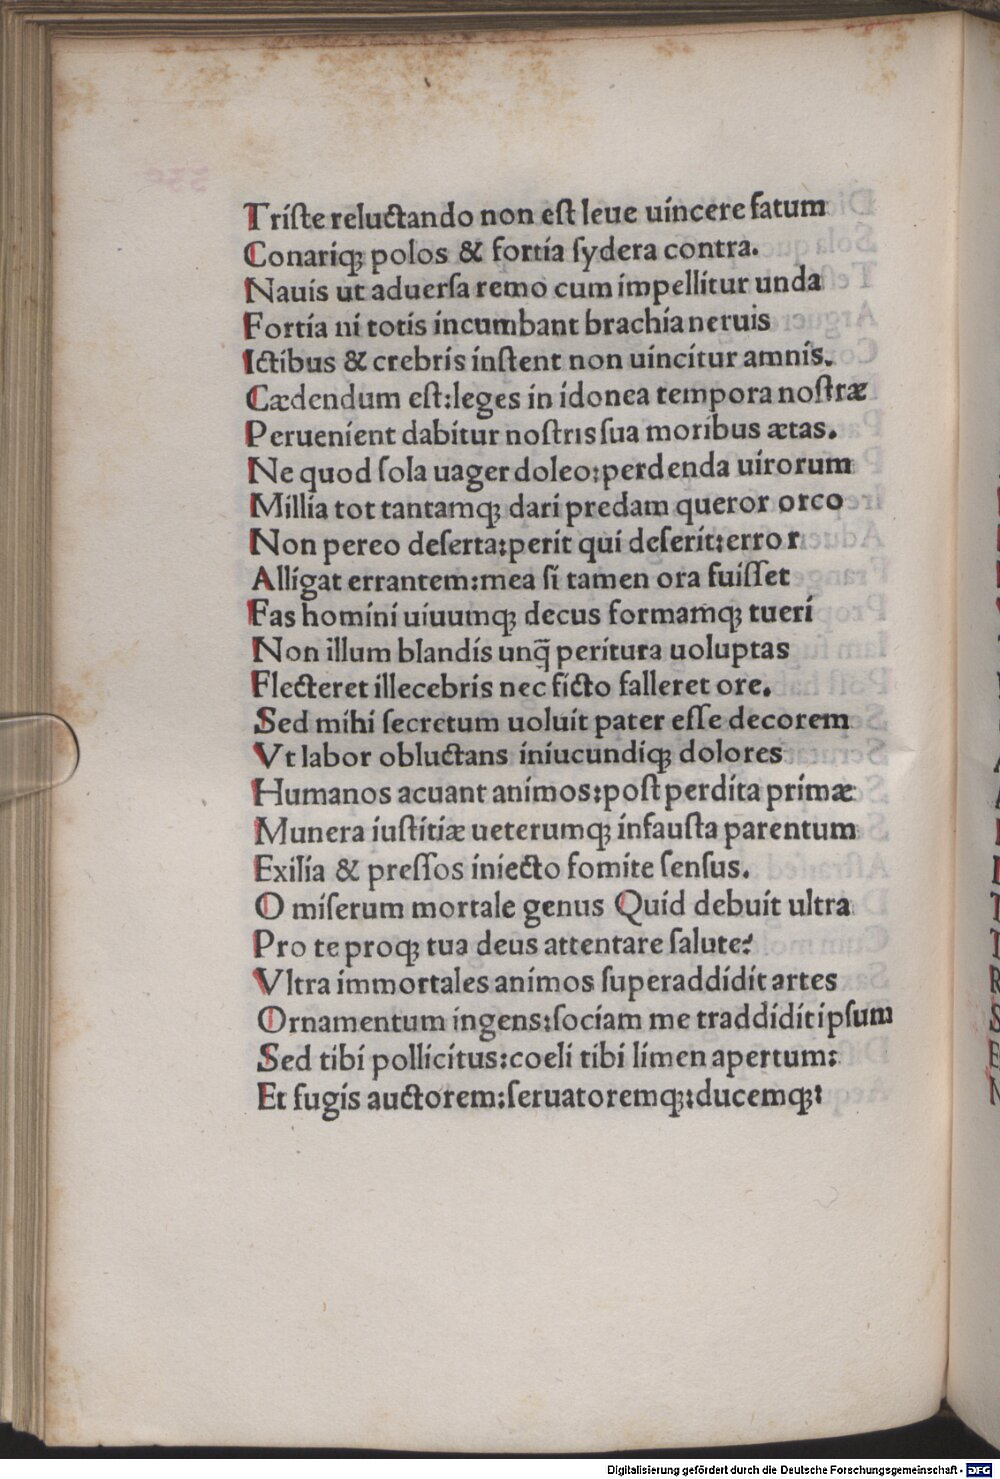 Triſte reluctando non eſt leue uincere fatum
Conariq; polos & fortia ſydera contra.
Nauis ut aduerſa remo cum impellitur unda
Fortia ni totis incumbant brachia neruis
Ictibus & crebris inſtent non uincitur amnis.
Cædendum eſt:leges in idonea tempora noſtræ
Peruenient dabitur noſtris ſua moribus ætas.
Ne quod ſola uager doleo:perdenda uirorum
Millia tot tantamq; dari predam queror orco
Non pereo deſerta:perit qui deſerit:error
Alligat errantem:mea ſi tamen ora fuiſſet
Fas homini uiuumq; decus formamq; tueri
Non illum blandis unq̄ peritura uoluptas
Flecteret illecebris nec ficto falleret ore.
Sed mihi ſecretum uoluit pater eſſe decorem
Vt labor obluctans iniucundiq; dolores
Humanos acuant animos:poſt perdita primæ
Munera iuſtitiæ ueterumq; infauſta parentum
Exilia & preſſos iniecto fomite ſenſus.
O miſerum mortale genus Quid debuit ultra
Pro te proq; tua deus attentare ſalute?
Vltra immortales animos ſuperaddidit artes
Ornamentum ingens:ſociam me traddidit ipſum
Sed tibi pollicitus:coeli tibi limen apertum:
Et fugis auctorem:ſeruatoremq;:ducemq;:
Digitalisierung gefördert durch die Deutsche Forschungsgemeinschaft - DFG